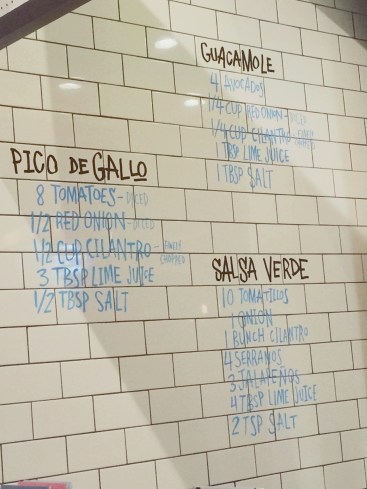 GUACAMOLE
4 AVOCADOS
1/4 CUP RED ONION - DICED
1/4 CUP CILANTRO - FINELY CHOPPED
1 TBSP LIME JUICE
1 TBSP SALT
PICO DE GALLO
8 TOMATOES - DICED
1/2 RED ONION - DICED
1/2 CUP CILANTRO - FINELY CHOPPED
3 TBSP LIME JUICE
1/2 TBSP SALT
SALSA VERDE
10 TOMATILLOS
1 ONION
1 BUNCH CILANTRO
4 SERRANOS
3 JALAPEÑOS
4 TBSP LIME JUICE
2 TSP SALT